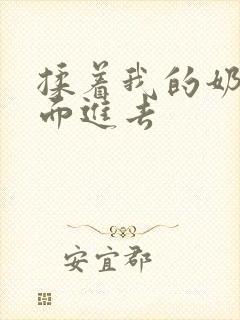 揉着我的奶
而进去
安宜郡